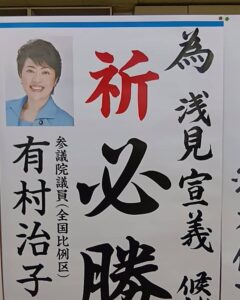 為浅見宣義候
祈必勝
参議院議員(全国比例区)
有村治子